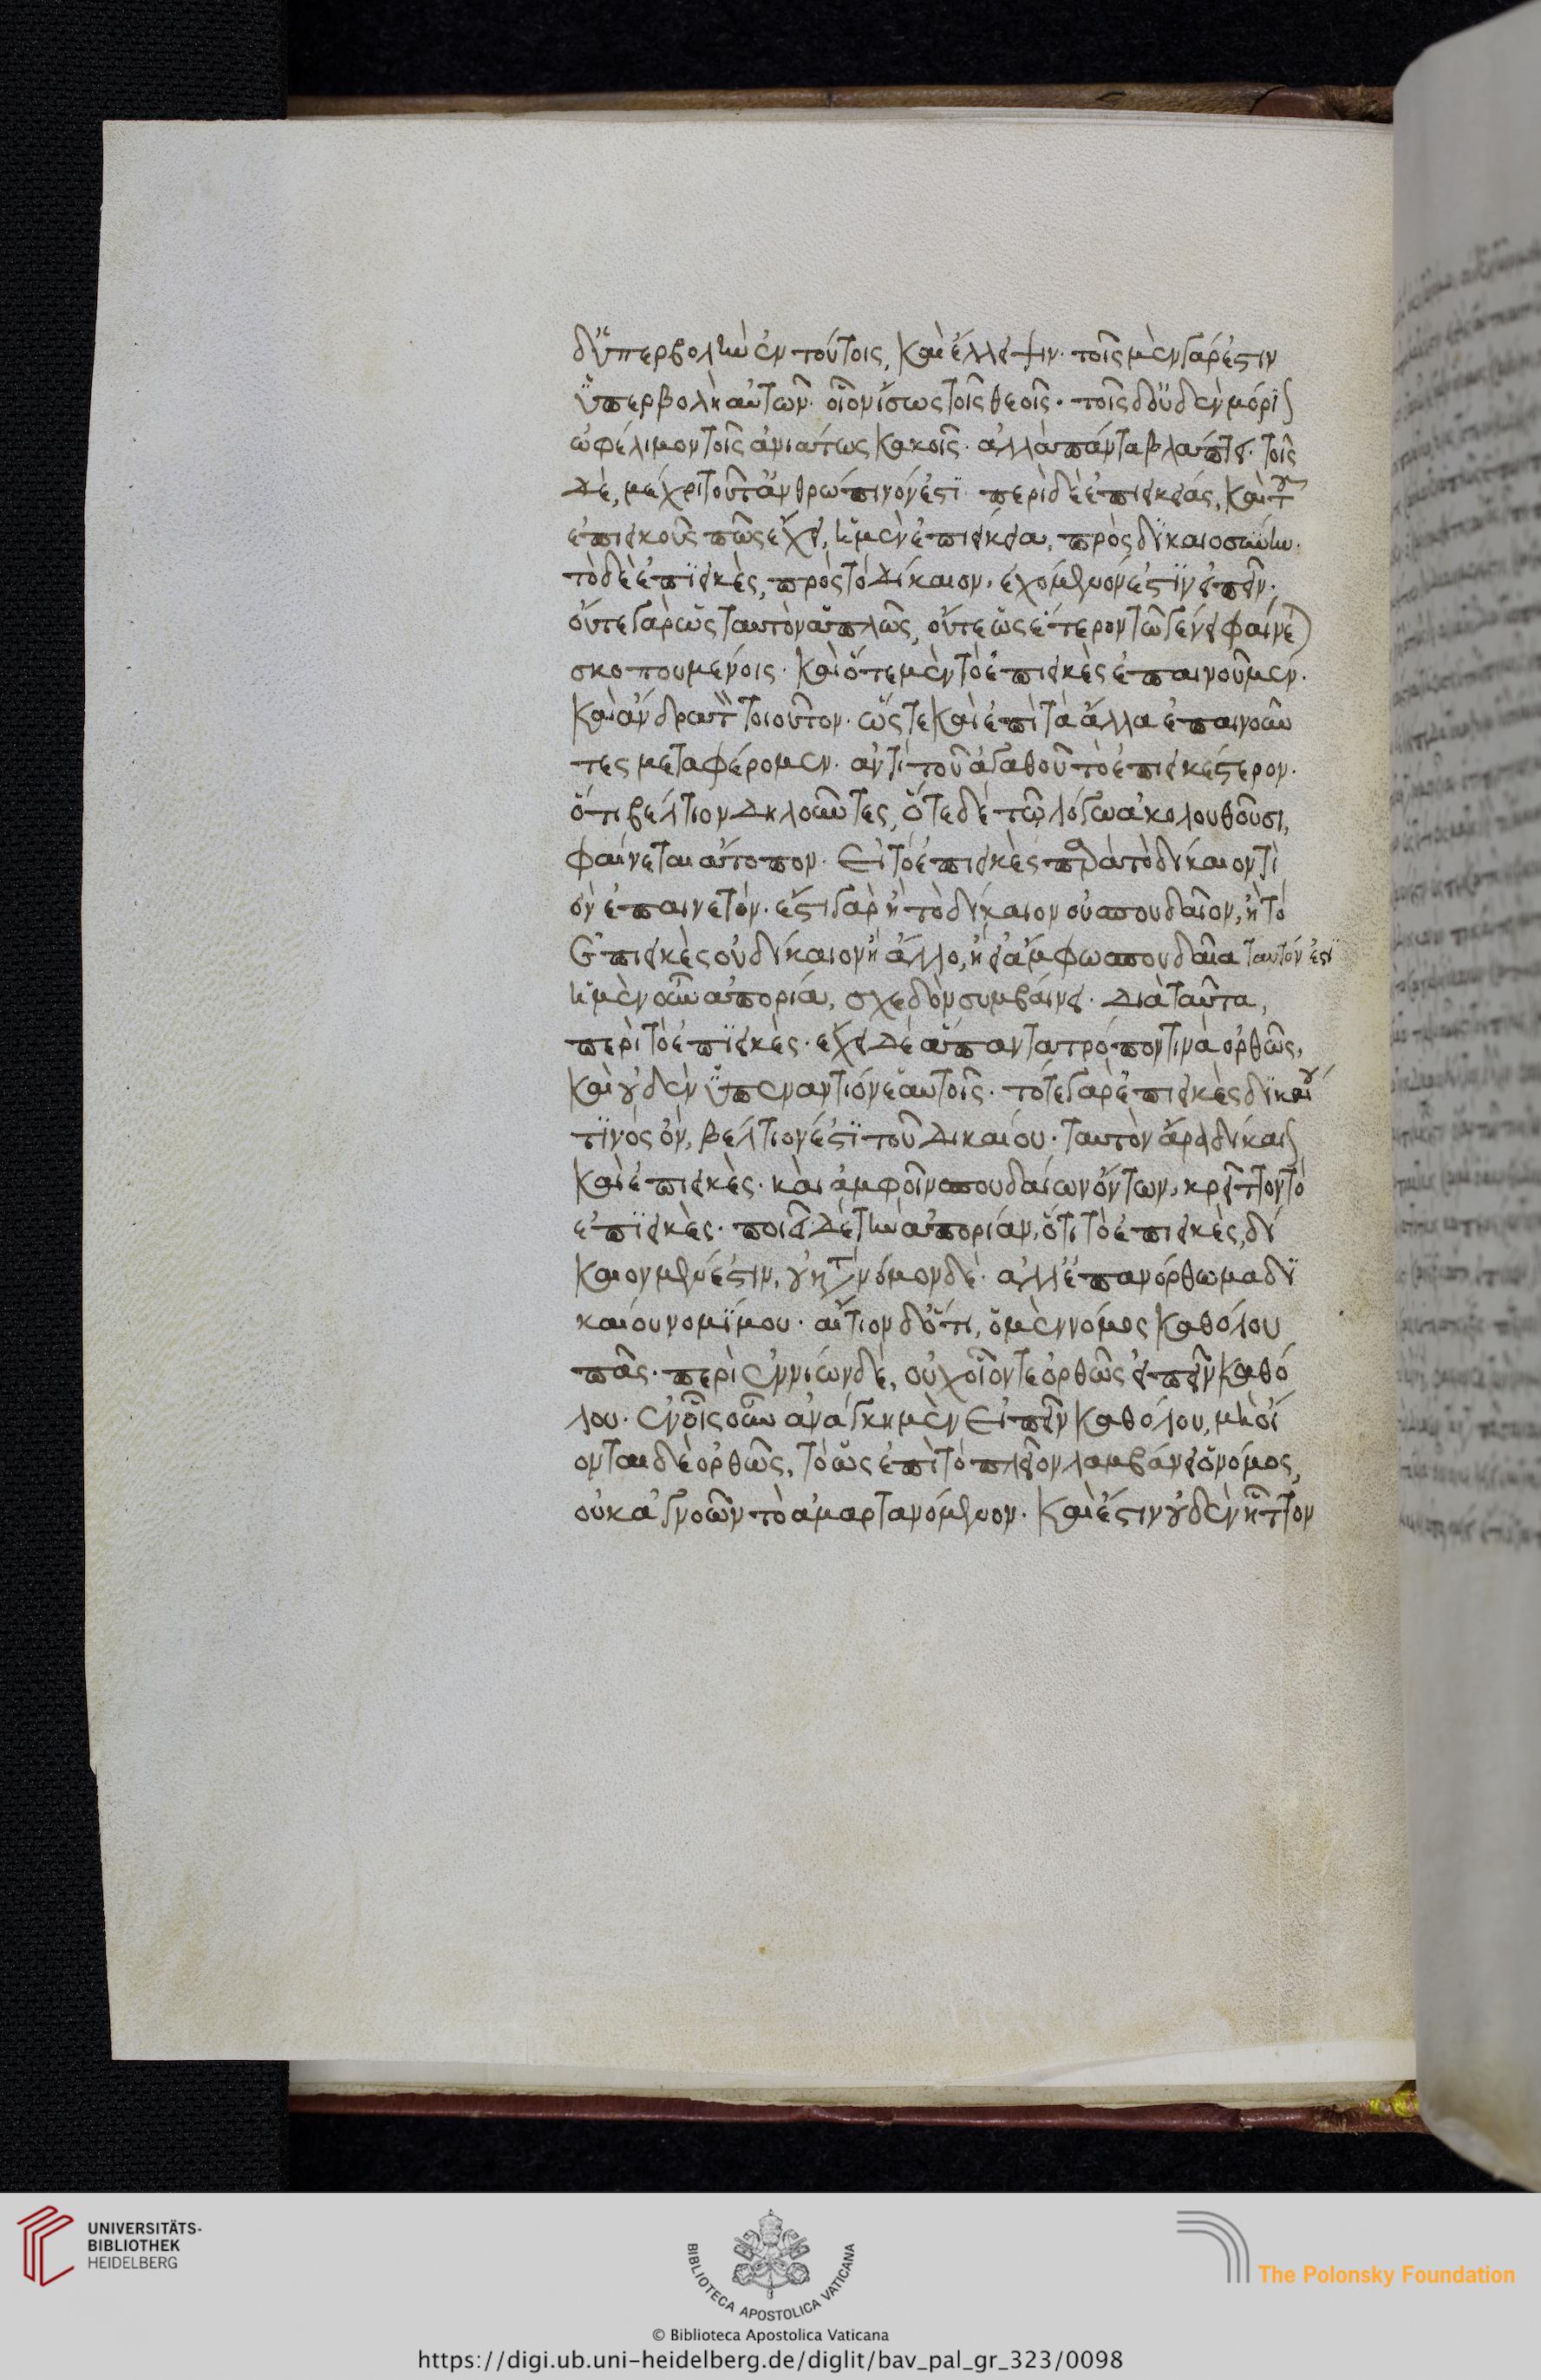 δ' ὑπερβολὴν ἐν τούτοις, καὶ ἔλλειψιν· τοῖς μὲν γάρ ἐστιν
ὑπερβολὴ αὐτῶν· οἷον ἴσως τοῖς θεοῖς· τοῖς δ' οὐδὲν μόριον
ὠφέλιμον τοῖς ἀνιάτως κακοῖς· ἀλλὰ πάντα βλάπτει· τοῖς
δὲ, μέχρι του· τοῦτ' ἀνθρώπινόν ἐστι· περὶ δὲ ἐπιεικείας, καὶ τοῦ
ἐπιεικοῦς πῶς ἔχει, ἡ μὲν ἐπιείκεια, πρὸς δικαιοσύνην·
τὸ δὲ ἐπιεικὲς, πρὸς τὸ δίκαιον, ἐχόμενόν ἐστιν εἰπεῖν·
οὔτε γὰρ ὡς ταυτὸν ἁπλῶς, οὔτε ὡς ἕτερον τῷ γένει φαίνεται
σκοπουμένοις· καὶ ὅτε μὲν τὸ ἐπιεικὲς ἐπαινοῦμεν·
καὶ ἄνδρα τὸν τοιοῦτον· ὥστε καὶ ἐπὶ τὰ ἄλλα ἐπαινοῦν
τες μεταφέρομεν· ἀντὶ τοῦ ἀγαθοῦ τὸ ἐπιεικέστερον·
ὅτι βέλτιον δηλοῦντες, ὅτε δὲ τῷ λόγῳ ἀκολουθοῦσι,
φαίνεται ἄτοπον· εἰ τὸ ἐπιεικὲς παρὰ τὸ δίκαιον τὶ
ὂν ἐπαινετόν· ἔστι γὰρ ἢ τὸ δίκαιον οὐ σπουδαῖον, ἢ τὸ
ἐπιεικὲς οὐ δίκαιον ἢ ἄλλο, ἢ εἰ ἄμφω σπουδαῖα ταυτόν ἐστι
ἡ μὲν οὖν ἀπορία, σχεδὸν συμβαίνει· διὰ ταῦτα,
περὶ τὸ ἐπιεικὲς· ἔχει δὲ ἅπαντα τρόπον τινὰ ὀρθῶς,
καὶ οὐδὲν ὑπεναντίον ἑαυτοῖς· τό τε γὰρ ἐπιεικὲς δικαίου
τινὸς ὂν, βέλτιόν ἐστι τοῦ δικαίου· ταυτὸν ἄρα δίκαιον
καὶ ἐπιεικὲς· καὶ ἀμφοῖν σπουδαίων ὄντων, κρεῖττον τὸ
ἐπιεικὲς· ποιεῖ δὲ τὴν ἀπορίαν, ὅτι τὸ ἐπιεικὲς, δί
καιον μέν ἐστιν, οὐ κατὰ νόμον δὲ· ἀλλ' ἐπανόρθωμα δι
καίου νομίμου· αἴτιον δ' ὅτι, ὁ μὲν νόμος καθόλου
πᾶς· περὶ ἐνίων δὲ, οὐχ οἷόν τε ὀρθῶς εἰπεῖν καθό
λου· ἐν οἷς οὖν ἀνάγκη μὲν εἰπεῖν καθόλου, μὴ οἷ
ονται δὲ ὀρθῶς, τὸ ὡς ἐπὶ τὸ πλεῖον λαμβάνει ὁ νόμος,
οὐκ ἀγνοῶν τὸ ἁμαρτανόμενον· καὶ ἔστιν οὐδὲν ἧττον
UNIVERSITÄTS-
BIBLIOTHEK
HEIDELBERG
BIBLIOTECA APOSTOLICA VATICANA
The Polonsky Foundation
© Biblioteca Apostolica Vaticana
https://digi.ub.uni-heidelberg.de/diglit/bav_pal_gr_323/0098